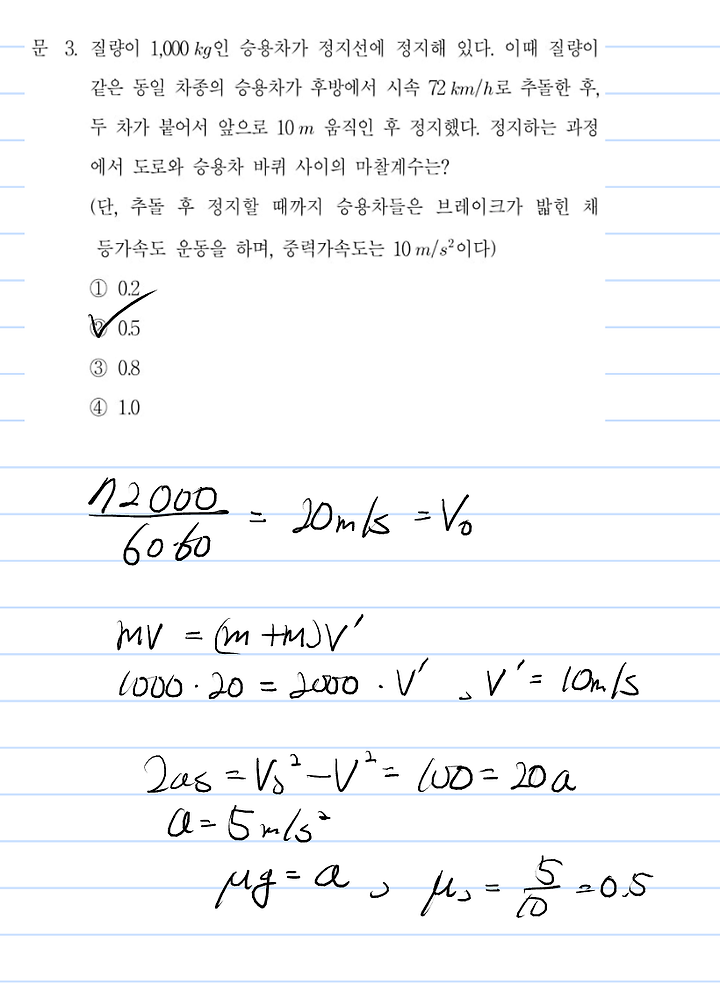 문 3. 질량이 1,000 kg인 승용차가 정지선에 정지해 있다. 이때 질량이
같은 동일 차종의 승용차가 후방에서 시속 72 km/h로 추돌한 후,
두 차가 붙어서 앞으로 10 m 움직인 후 정지했다. 정지하는 과정
에서 도로와 승용차 바퀴 사이의 마찰계수는?
(단, 추돌 후 정지할 때까지 승용차들은 브레이크가 밟힌 채
등가속도 운동을 하며, 중력가속도는 10 m/s²이다)
① 0.2
② 0.5
③ 0.8
④ 1.0
72000
/ 60·60 = 20m/s = V₀
mv = (m+m)V′
1000·20 = 2000·V′, V′ = 10m/s
2as = V₀² − V² = 100 = 20a
a = 5 m/s²
μg = a, μ, = 5/10 = 0.5